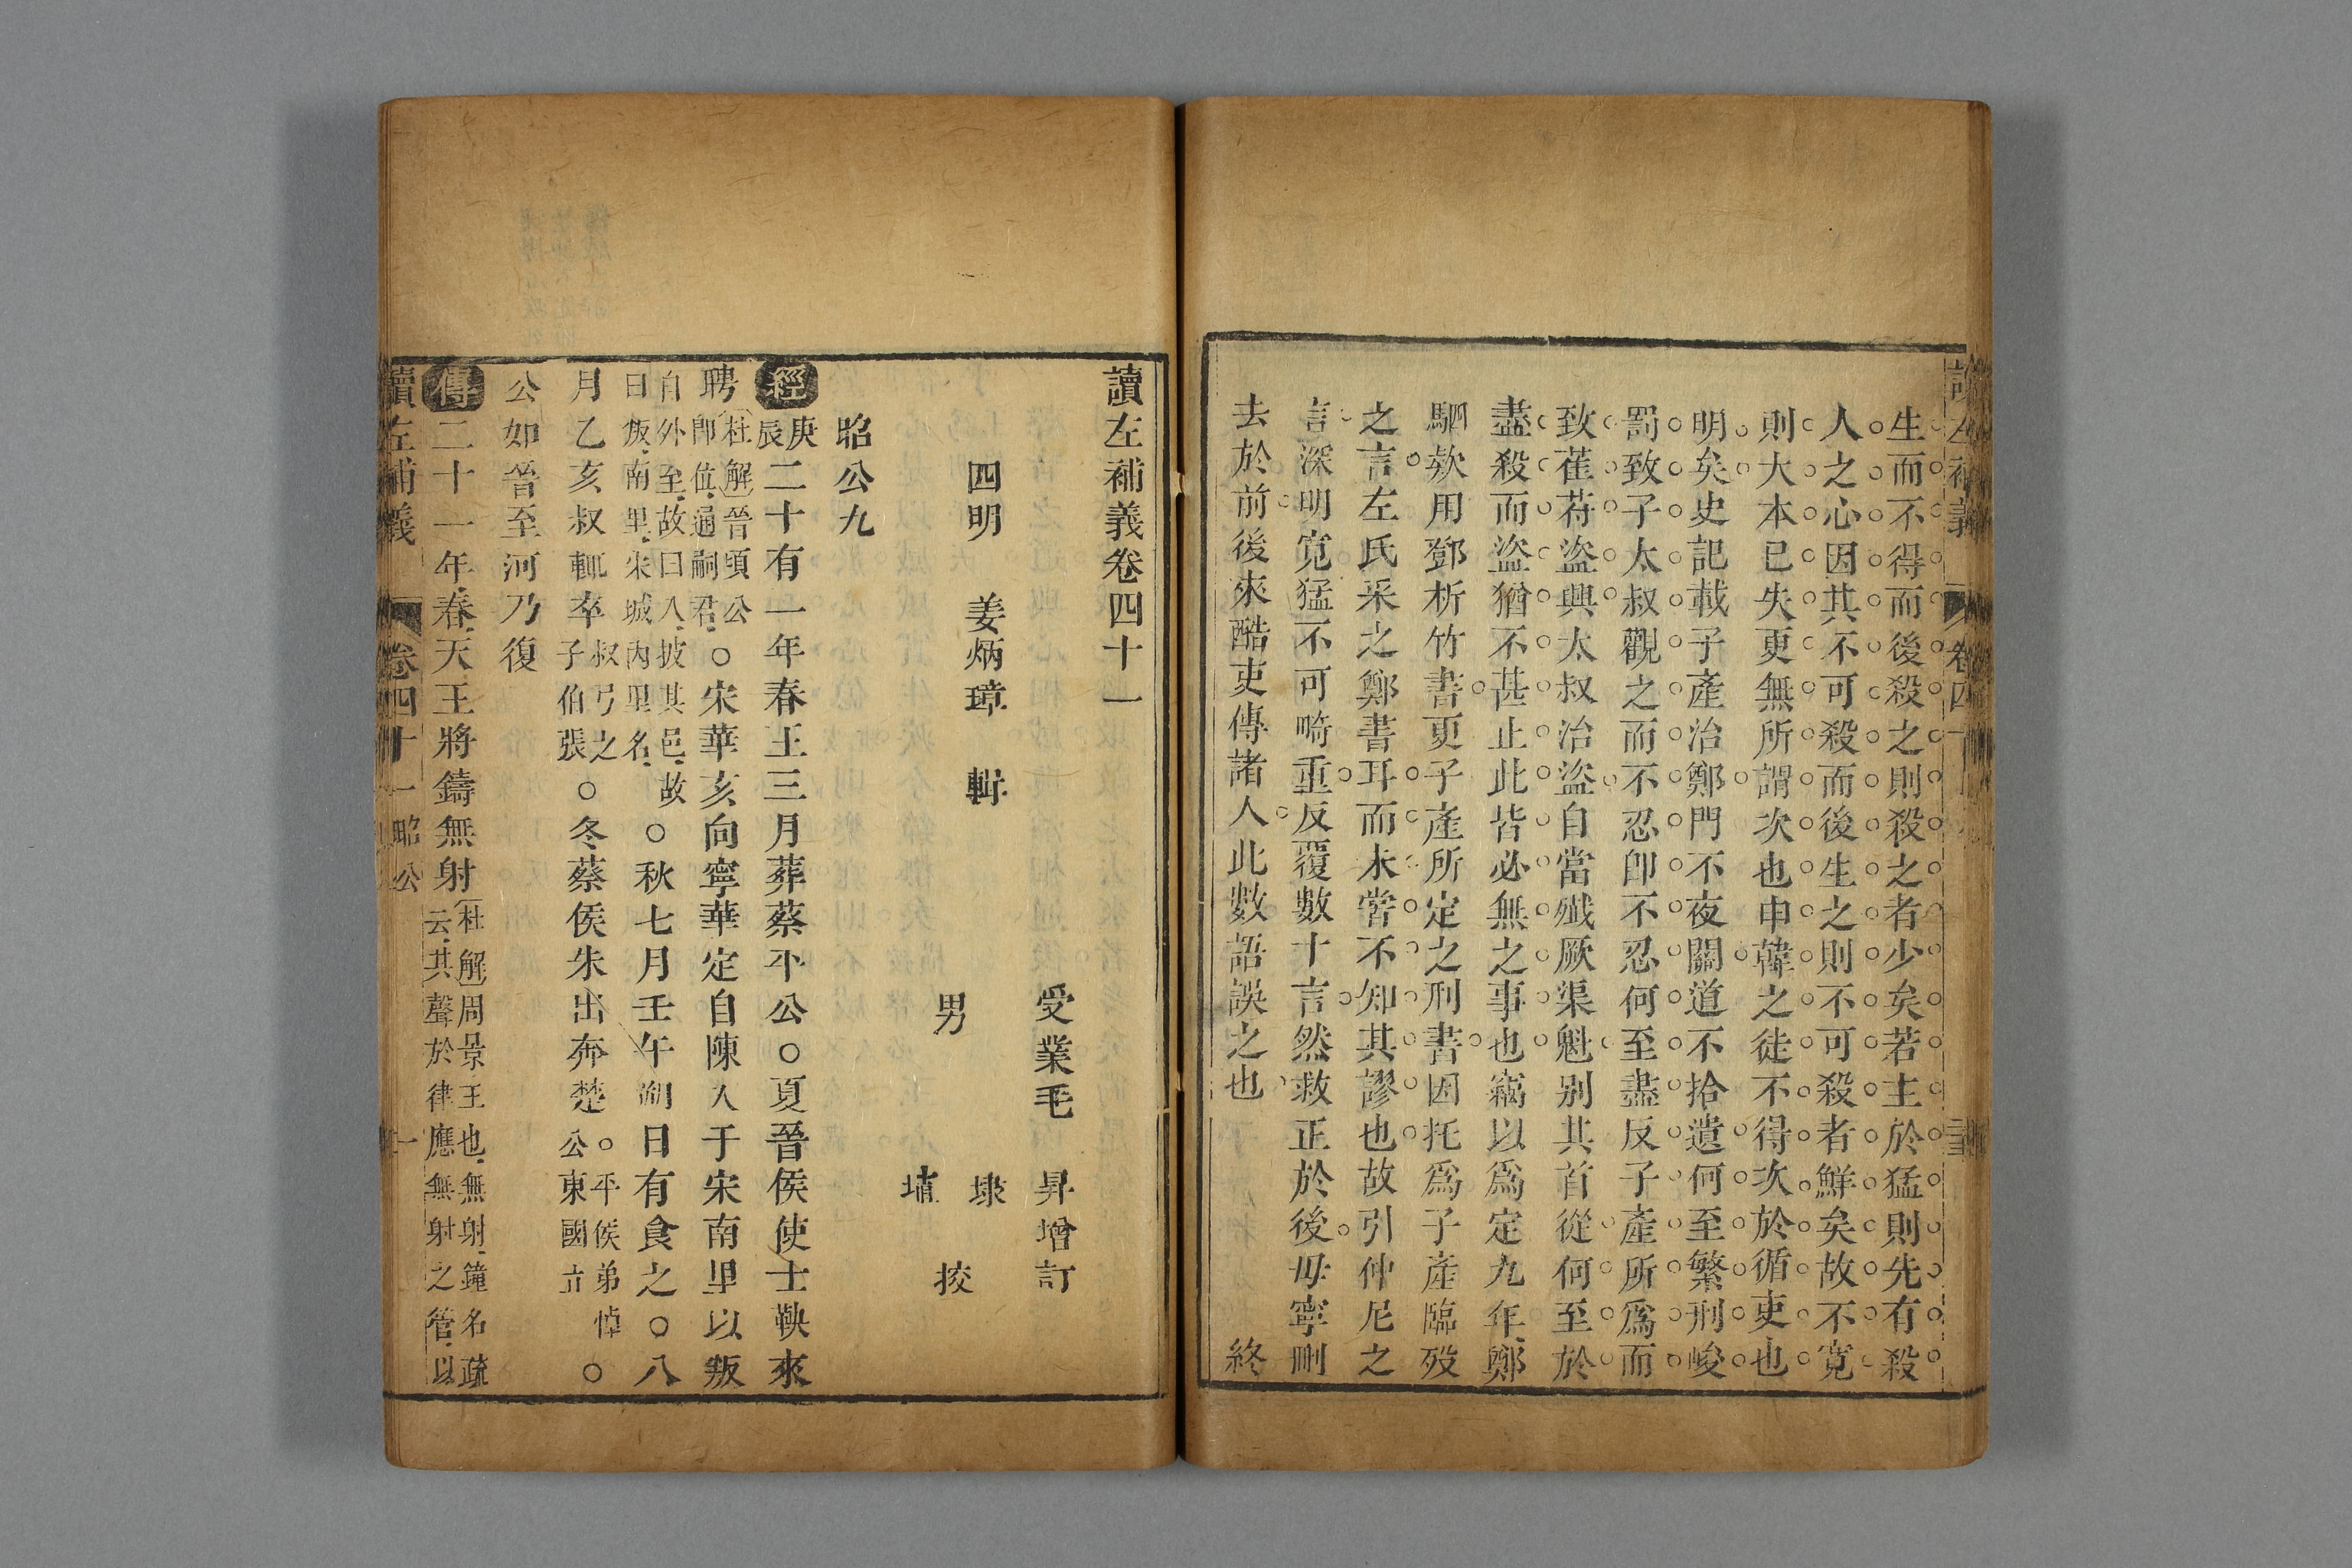 生而不得而後殺之則殺之者少矣若主於猛則先有殺
人之心因其不可殺而後生之則不可殺者鮮矣故不寬
則大本已失更無所謂次也申韓之徒不得次於循吏也
明矣史記載子產治鄭門不夜關道不拾遺何至繁刑峻
罰致子太叔觀之而不忍卽不忍何至盡反子產所爲而
致萑苻盜興太叔治盜自當殲厥渠魁别其首從何至於
盡殺而盜猶不甚止此皆必無之事也竊以爲定九年鄭
駟歂用鄧析竹書更子產所定之刑書因托爲子產臨歿
之言左氏采之鄭書耳而未甞不知其謬也故引仲尼之
言深明寬猛不可畸重反覆數十言然救正於後毋寧刪
去於前後來酷吏傳諸人此數語誤之也
終
讀左補義卷四十一
受業毛昇增訂
四明姜炳璋輯
男埭
埴
挍
昭公九
經庚辰二十有一年春王三月葬蔡平公○夏晉侯使士鞅來
聘杜解晉頃公卽位通嗣君○宋華亥向寧華定自陳入于宋南里以叛
自外至故曰入披其邑故曰叛南里宋城內里名○秋七月壬午朔日有食之○八
月乙亥叔輒卒叔弓之子伯張○冬蔡侯朱出奔楚○平侯弟悼公東國立○
公如晉至河乃復
傳二十一年春天王將鑄無射杜解周景王也無射鐘名疏云其聲於律應無射之管以
讀左補義
卷四十一昭公
一